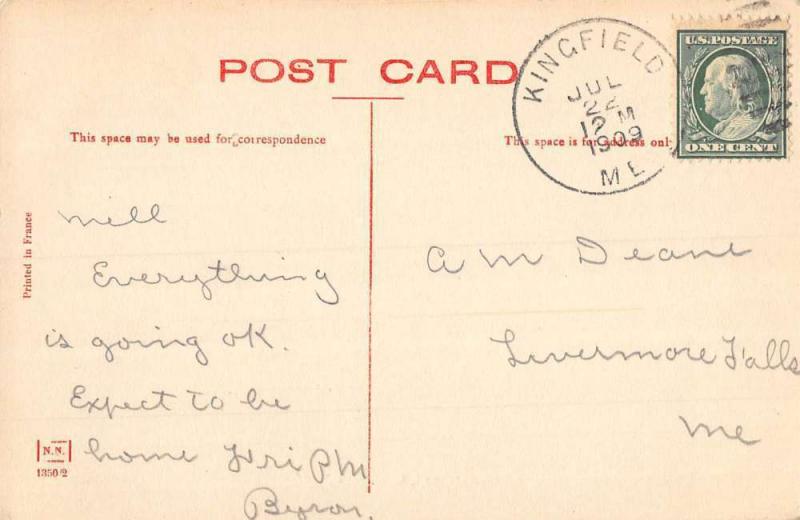 POST CARD
This space may be used for correspondence
This space is for address only
KINGFIELD
JUL
22
12 M
1909
ME
U.S. POSTAGE
ONE CENT
Printed in France
Mill
Everything
is going OK.
Expect to be
home Fri PM
Byron.
A M Deane
Livermore Falls
Me
N.N.
1350/2